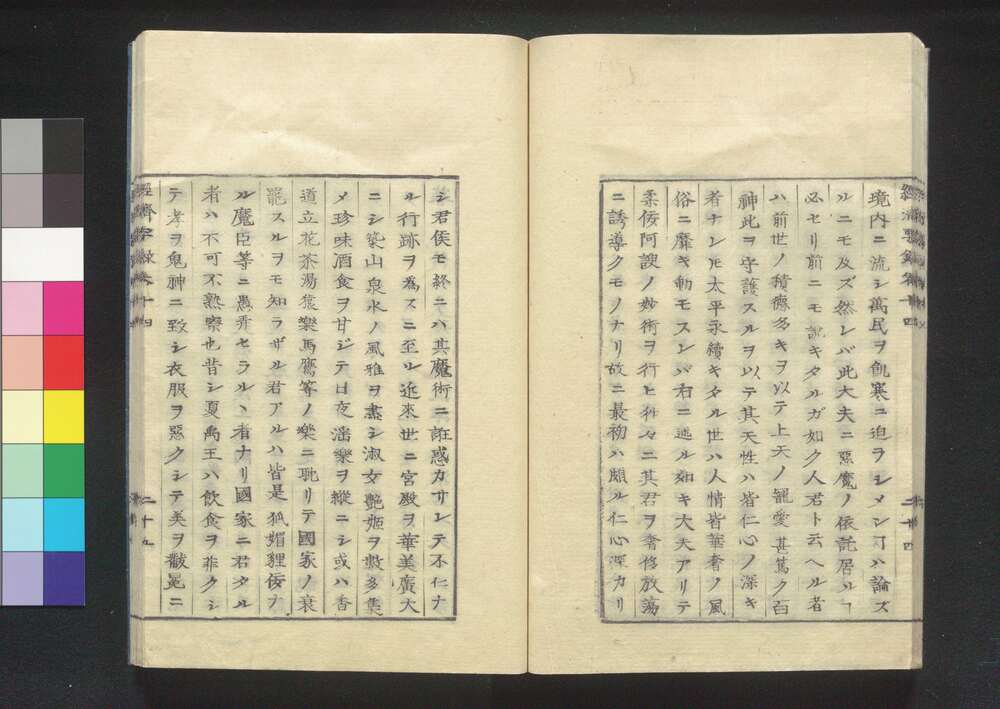 境内ニ流シ萬民ヲ飢寒ニ迫ラシメンヿハ論ズ
ルニモ及ズ然レバ此大夫ニ惡魔ノ依託居ルヿ
必セリ前ニモ説キタルガ如ク人君ト云ヘル者
ハ前世ノ積瘵多キヲ以テ上天ノ寵愛甚篤ク百
神此ヲ守護スルヲ以テ其天性ハ皆仁心ノ深キ
者ナレドモ太平永續キタル世ハ人情皆華奢ノ風
俗ニ靡キ動モスレバ右ニ述ル如キ大夫アリテ
柔佞阿諛ノ妙術ヲ行ヒ稍々ニ其君ヲ奢侈放蕩
ニ誘導クモノナリ故ニ最初ハ頗ル仁心深カリ
シ君侯モ終ニハ其魔術ニ誑惑カサレテ不仁ナ
ル行跡ヲ為スニ至ル近來世ニ宮殿ヲ華美廣大
ニシ築山泉水ノ風雅ヲ盡シ淑女艶姬ヲ數多集
メ珍味酒食ヲ甘ジテ日夜滛樂ヲ縱ニシ或ハ香
道立花茶湯猿樂馬鷹等ノ樂ニ耽リテ國家ノ衰
罷スルヲモ知ラザル君アルハ皆是狐媚貍佞ナ
ル魔臣等ニ愚弄セラルヽ者ナリ國家ニ君タル
者ハ不可不熟察也昔シ夏禹王ハ飲食ヲ菲クシ
テ孝ヲ鬼神ニ致シ衣服ヲ惡クシテ美ヲ黻冕ニ
二十五